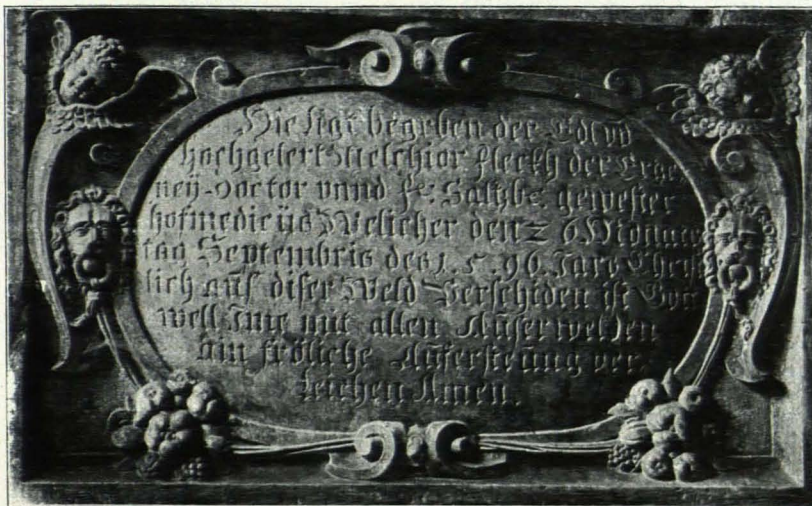 Hie ligt begrben der Edl vnd
hochgelert Melchior fleckh der Ertze
ney-Doctor vnnd fr: Saltzb: gewester
hofmedicüs Welicher den 26 Monats
tag Septembris des 1.5.96. Jars Christ
lich auß diser Weld Verschiden ist Gott
well Jme mit allen Außerwelden
Ain fröliche Aufersteung ver
leichen Amen.